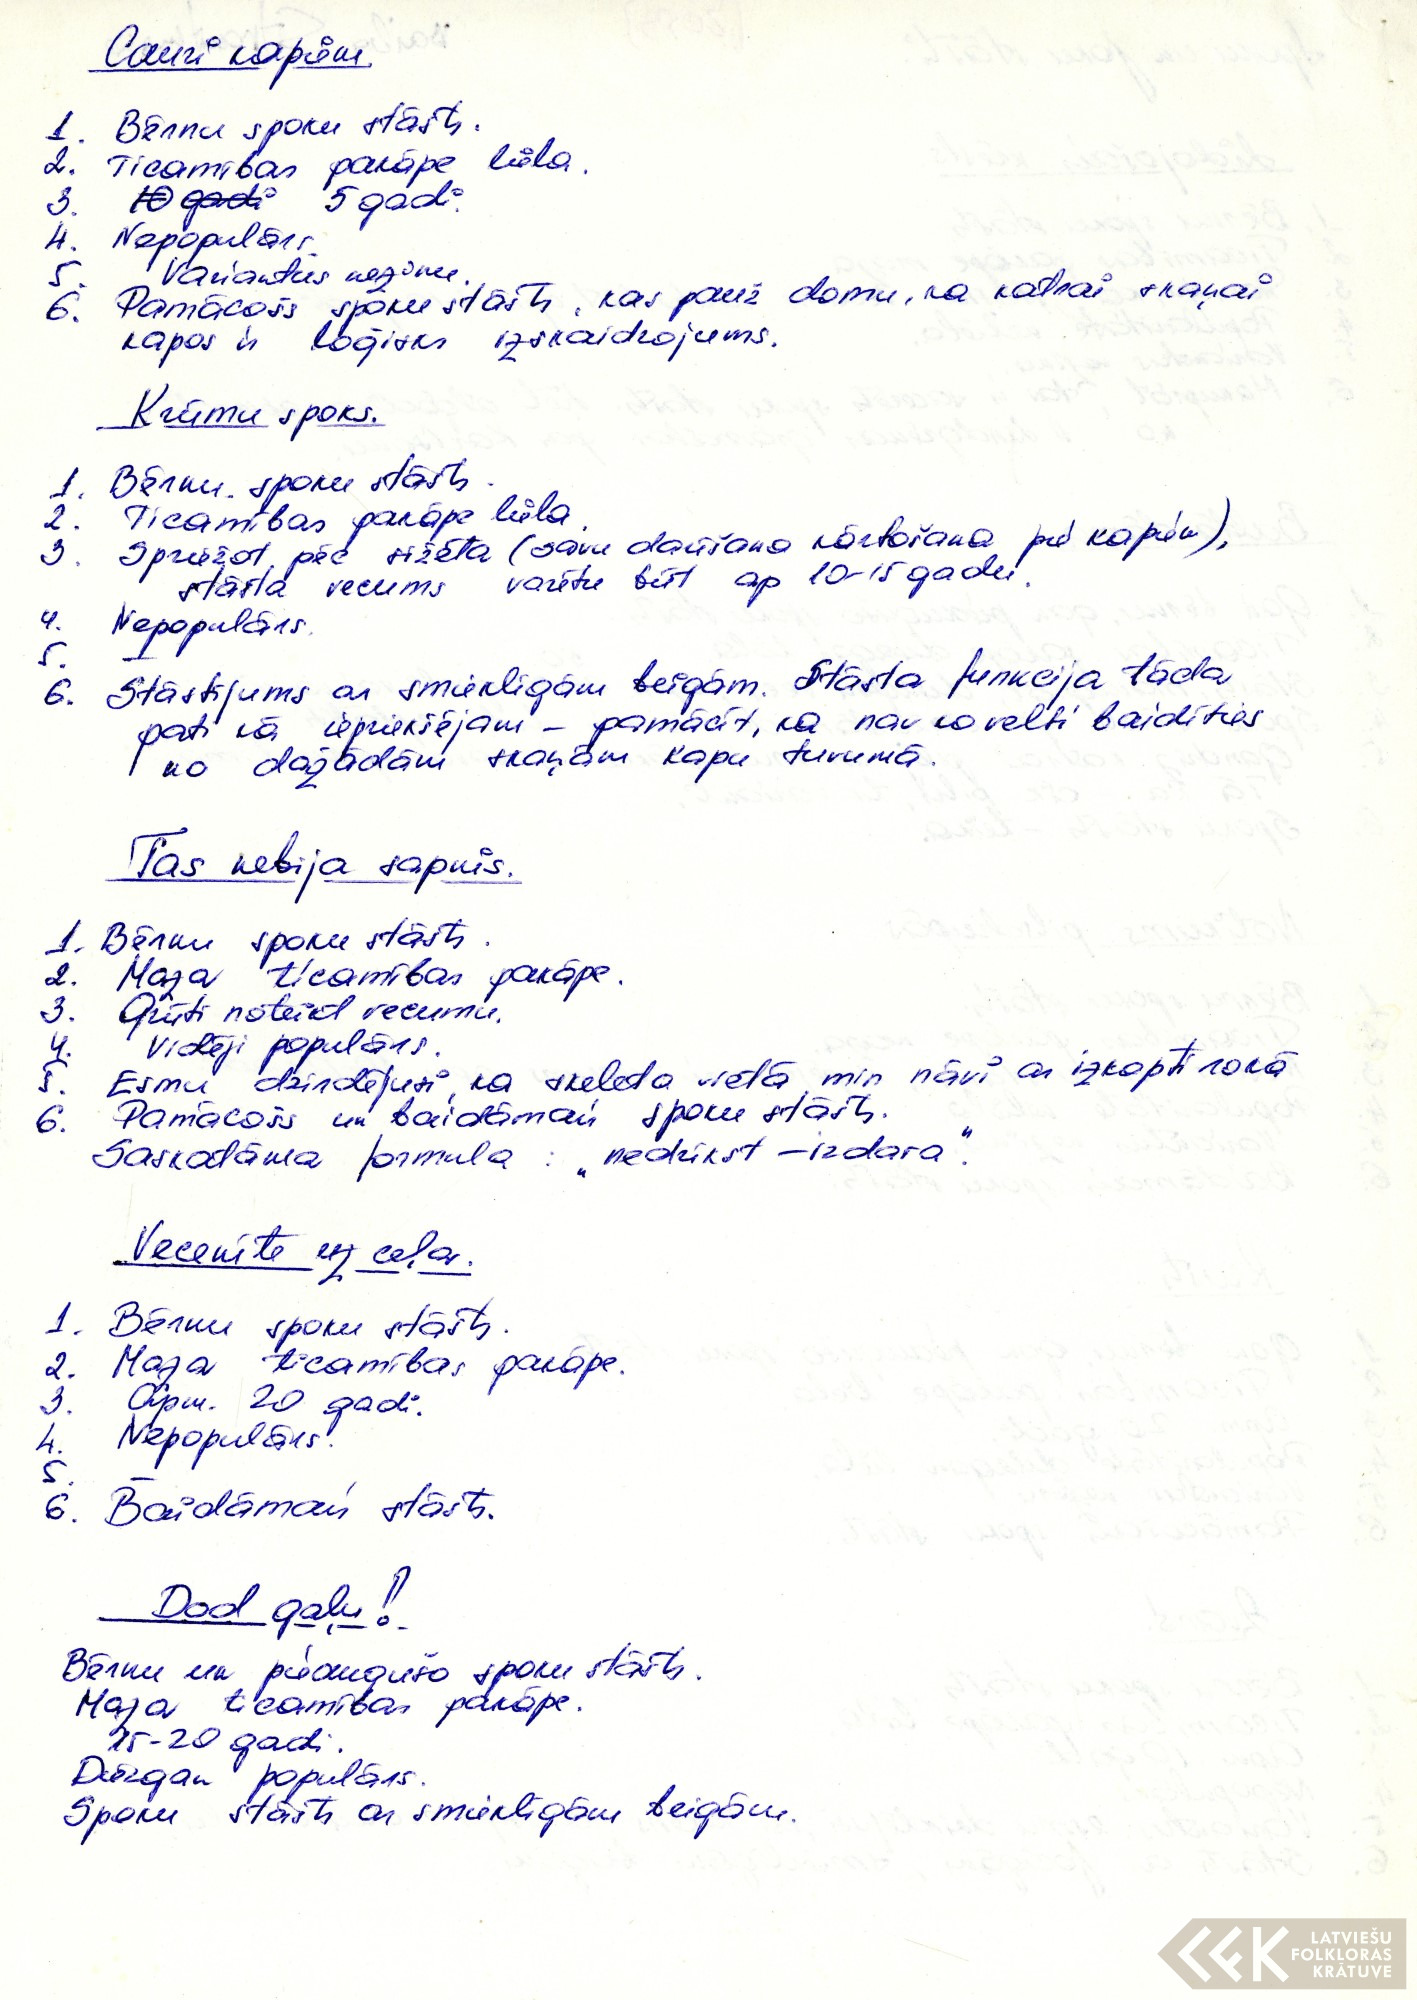 Cauri kapiem.
1. Bērnu spoku stāsts.
2. Ticamības pakāpe liela.
3. 10 gadi 5 gadi.
4. Nepopulārs.
5. Variantus nezinu.
6. Pamācošs spoku stāsts, kas pauž domu, ka katrai skaņai
kapos ir loģisks izskaidrojums.
Krūmu spoks.
1. Bērnu spoku stāsts.
2. Ticamības pakāpe liela.
3. Spriežot pēc sižeta (savu darīšanu kārtošana pie kapiem),
stāsta vecums varētu būt ap 10-15 gadu.
4. Nepopulārs.
5. —
6. Stāstījums ar smieklīgām beigām. Stāsta funkcija tāda
pati kā iepriekšējam – pamācīt, ka nav ko velti baidīties
no dažādām skaņām kapu tuvumā.
Tas nebija sapnis.
1. Bērnu spoku stāsts.
2. Maza ticamības pakāpe.
3. Grūti noteikt vecumu.
4. Vidēji populārs.
5. Esmu dzirdējusi, ka skeleta vietā min nāvi ar izkapti rokā
6. Pamācošs un baidāmais spoku stāsts.
Saskatāma formula : „nedrīkst – izdara".
Vecenīte uz ceļa.
1. Bērnu spoku stāsts.
2. Maza ticamības pakāpe.
3. Apm. 20 gadi.
4. Nepopulārs.
5. –
6. Baidāmais stāsts.
Dod gaļu!
Bērnu un pieaugušo spoku stāsts.
Maza ticamības pakāpe.
15-20 gadi.
Diezgan populārs.
Spoku stāsts ar smieklīgām beigām.
LATVIEŠU
FOLKLORAS
KRĀTUVE